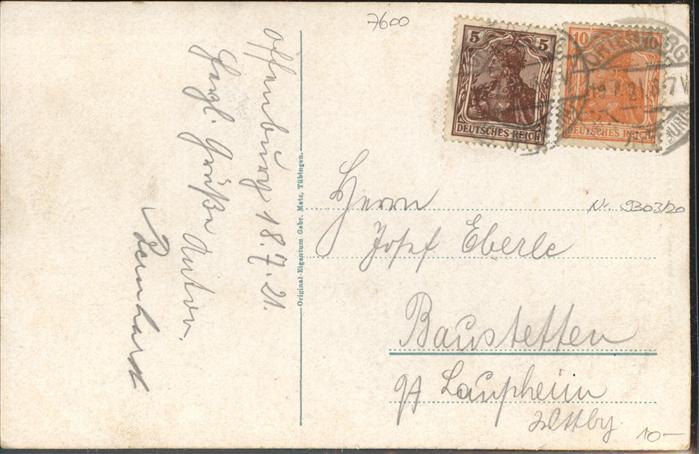 7600
Offenburg 18.7.21.
Herzl. Grüße Anton.
Bernhard
Original-Eigentum Gebr. Metz, Tübingen.
5 5
DEUTSCHES REICH
10 10
DEUTSCHES REICH
Herrn
N. 9303/20
Josef Eberle
Baustetten
Laupheim
Wttbg
10-